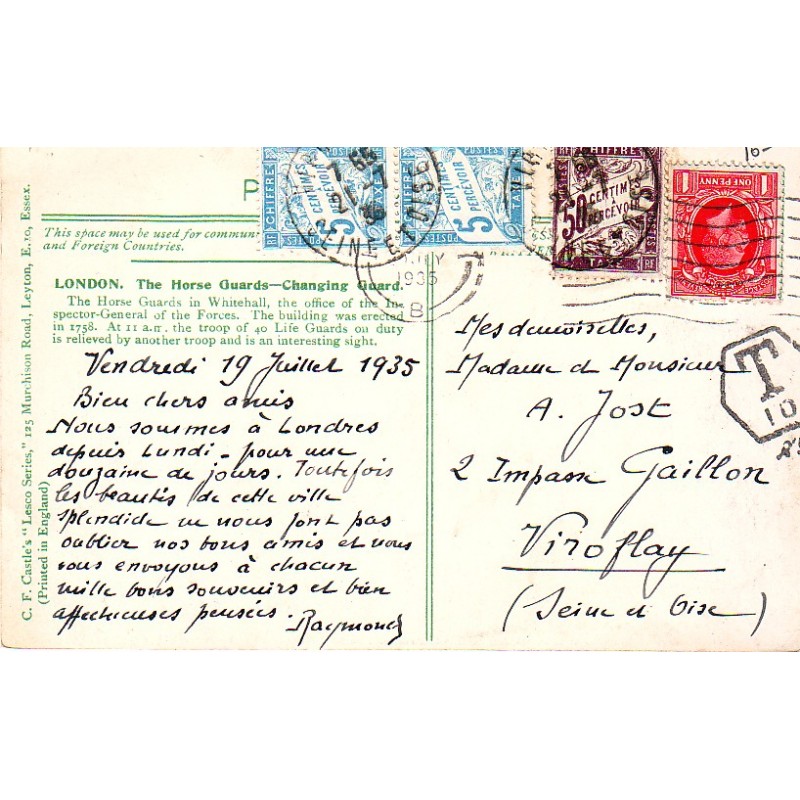 16
CHIFFRE
5
CENTIMES
A
PERCEVOIR
TAXE
POSTES
RF
CHIFFRE
5
CENTIMES
A
PERCEVOIR
TAXE
POSTES
RF
CHIFFRE
50
CENTIMES
A
PERCEVOIR
TAXE
POSTES
RF
1
ONE PENNY
1
POSTAGE
VIR
SEINE-ET-OISE
1935
B
T
10
P
This space may be used for commun
and Foreign Countries.
LONDON. The Horse Guards—Changing Guard.
The Horse Guards in Whitehall, the office of the In-
spector-General of the Forces. The building was erected
in 1758. At 11 a.m. the troop of 40 Life Guards on duty
is relieved by another troop and is an interesting sight.
C. F. Castle's "Lesco Series," 125 Murchison Road, Leyton, E.10, Essex.
(Printed in England)
Vendredi 19 Juillet 1935
Bien chers amis
Nous sommes à Londres
depuis Lundi - pour une
douzaine de jours. Toutefois
les beautés de cette ville
splendide ne nous font pas
oublier nos bons amis et nous
vous envoyons à chacun
mille bons souvenirs et bien
affectueuses pensées.
Raymond
Mesdemoiselles,
Madame et Monsieur
A. Jost
2 Impasse Gaillon
Viroflay
(Seine et Oise)